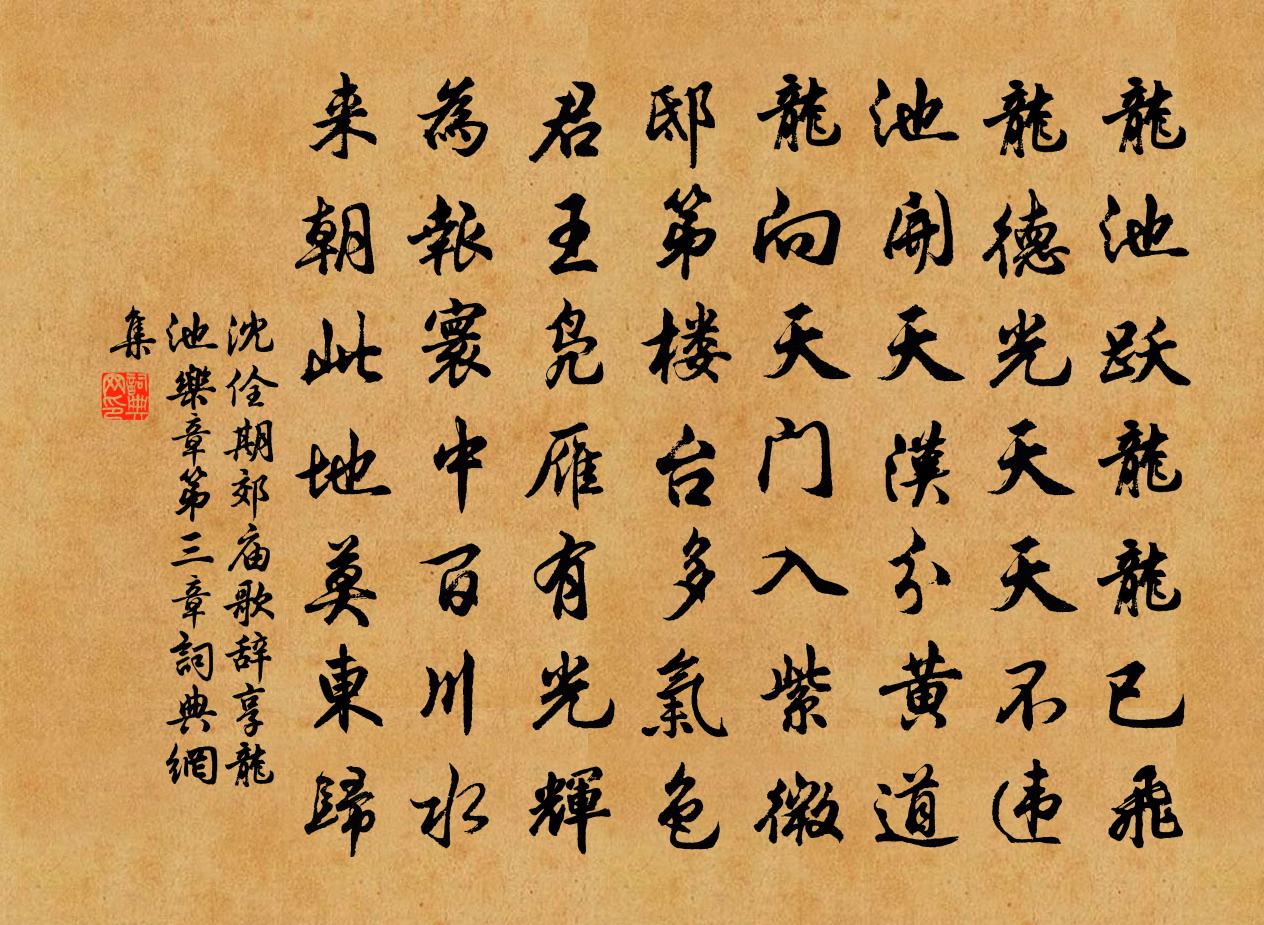 龍池跃龍龍已飛
龍德光天天不违
池開天漢分黄道
龍向天门入紫微
邸第楼台多氣色
君王凫雁有光輝
為報寰中百川水
来朝此地莫東歸
沈佺期郊庙歌辞享龍
池樂章第三章詞典網
集
詞典网印